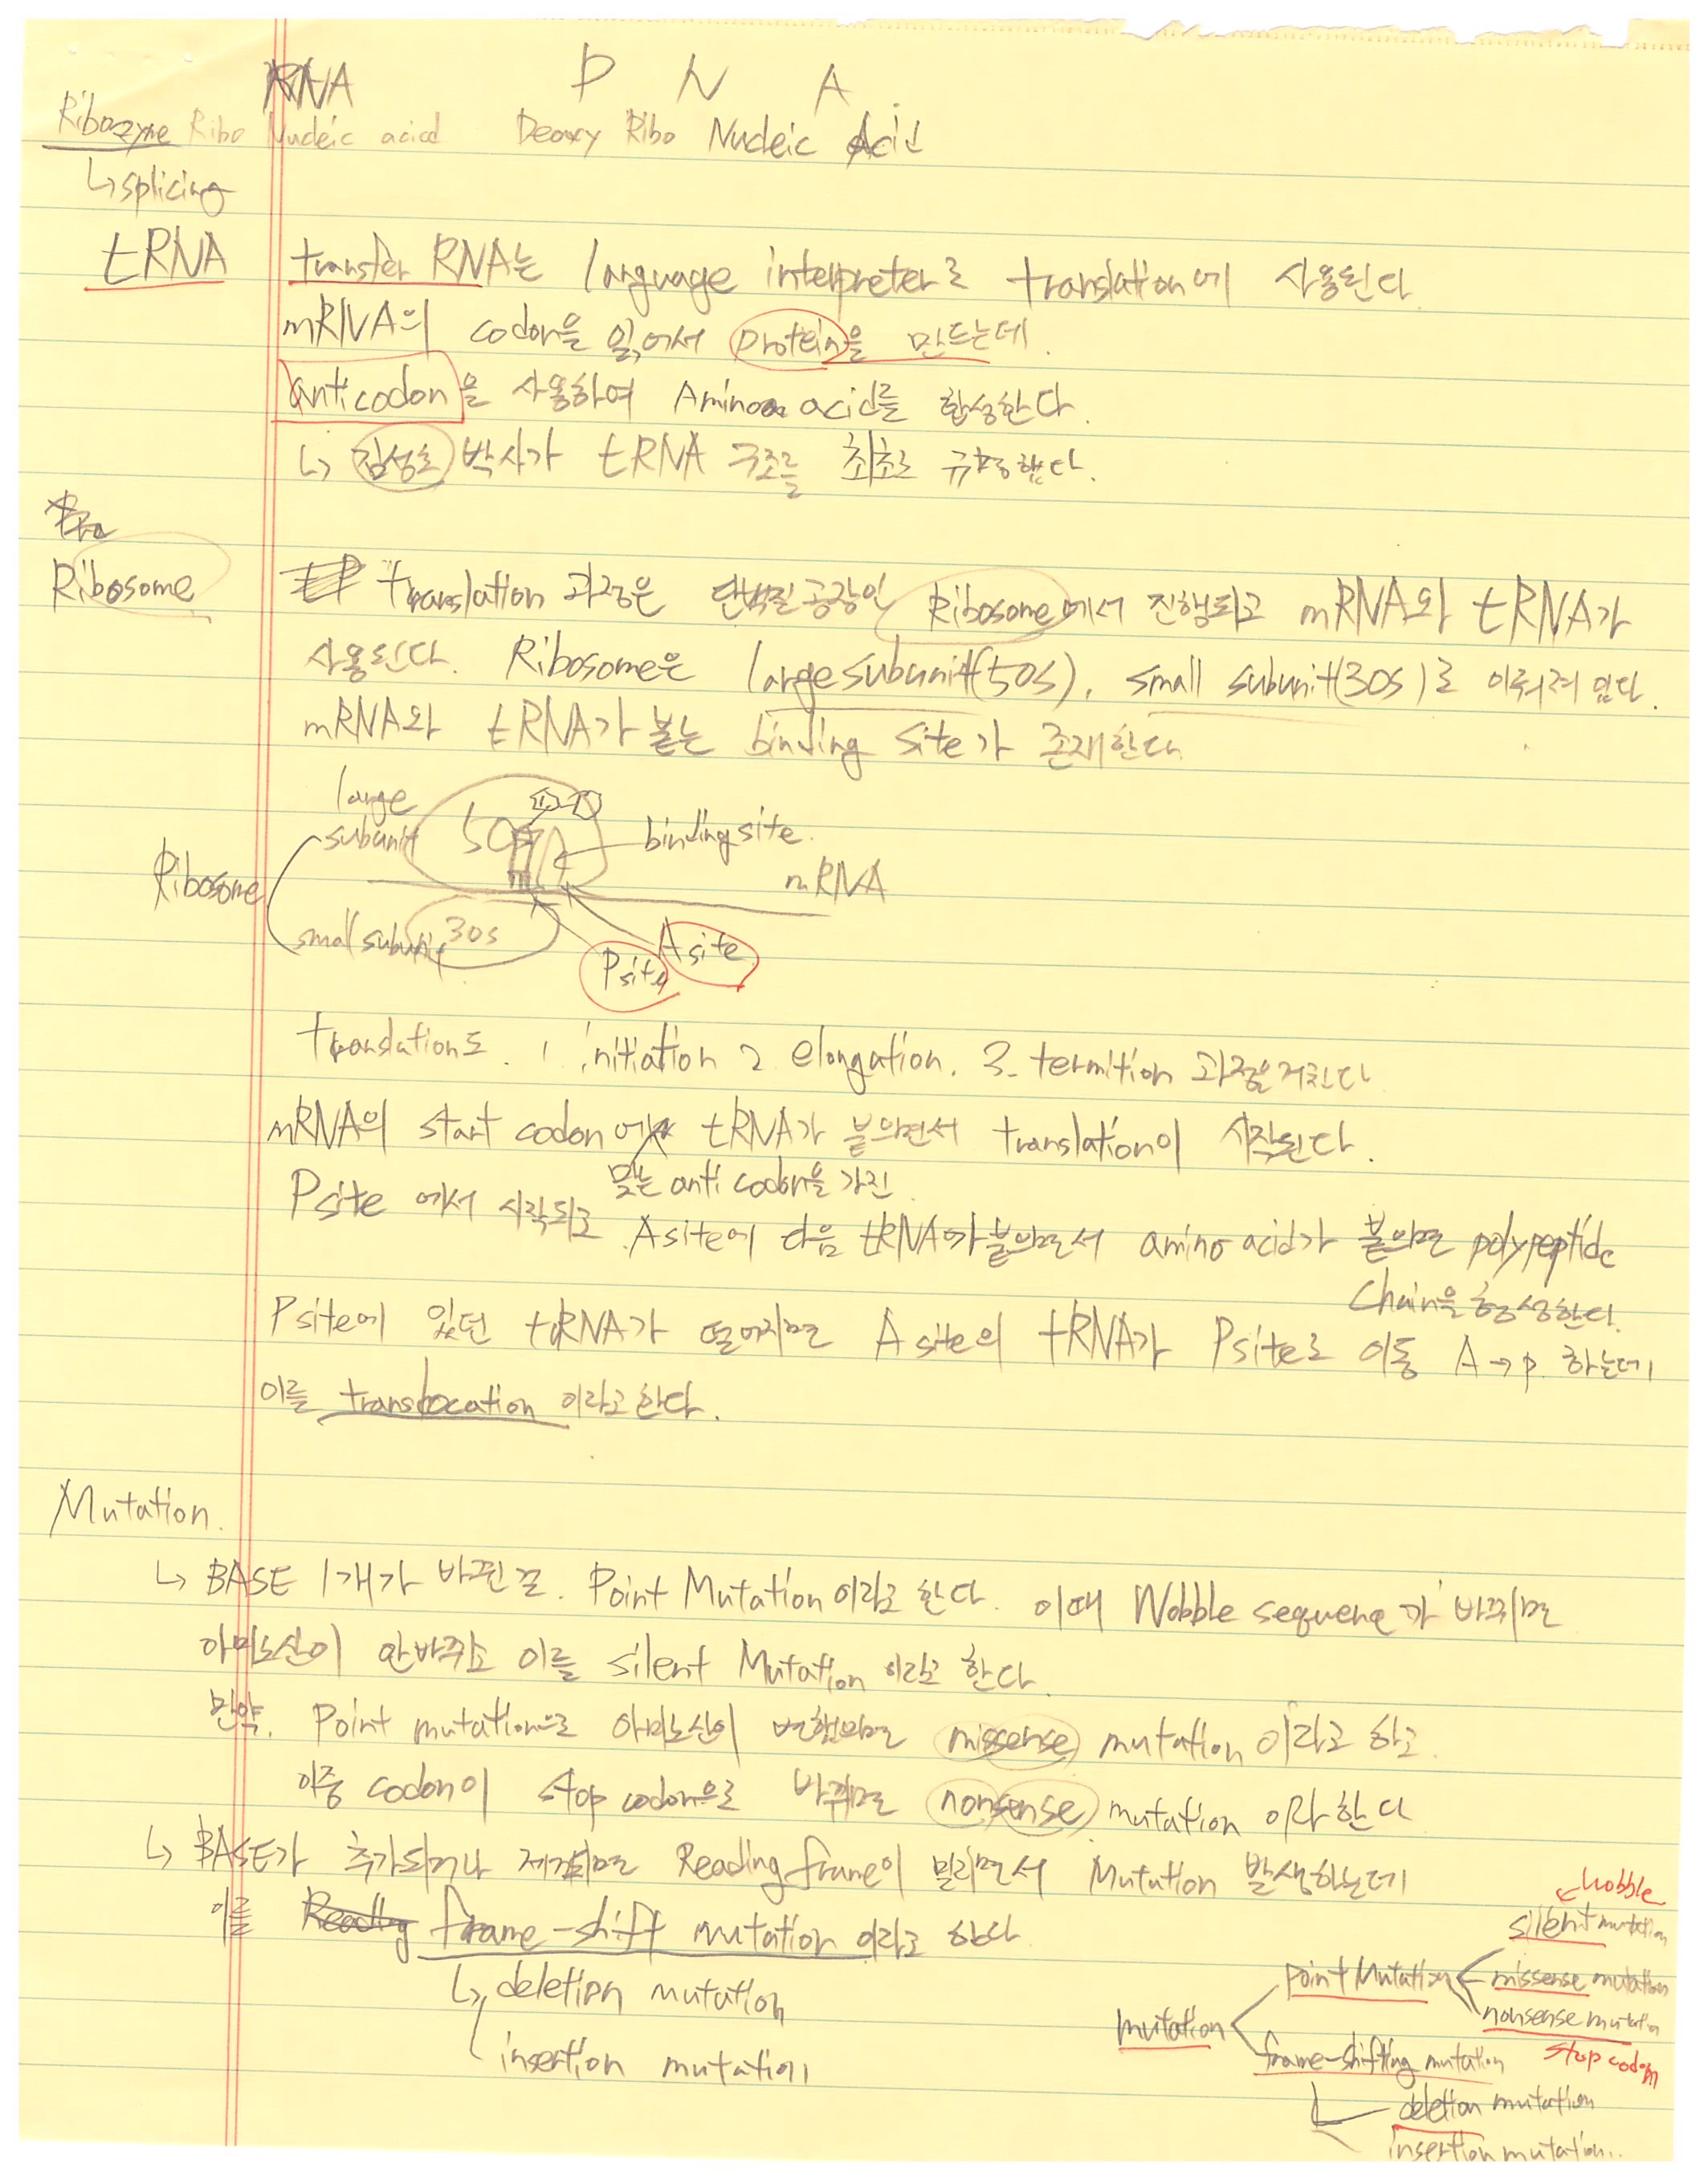 RNA D N A
Ribozyme Ribo Nucleic acid Deoxy Ribo Nucleic Acid
↳ splicing
tRNA transfer RNA는 language interpreter로 translation에 사용된다.
mRNA의 codon을 읽어서 protein을 만드는데.
anticodon을 사용하여 Amino acid를 합성한다.
↳ 김성호 박사가 tRNA 구조를 최초로 규명했다.
Ribosome translation 과정은 단백질 공장인 Ribosome에서 진행되고 mRNA와 tRNA가
사용된다. Ribosome은 large subunit(50s), small subunit(30s)로 이뤄져 있다.
mRNA와 tRNA가 붙는 binding site가 존재한다.
large
subunit 50s binding site.
Ribosome mRNA
small subunit 30s A site
P site
translation도. 1 initiation 2 elongation. 3. termition 과정을 거친다
mRNA의 start codon에 tRNA가 붙으면서 translation이 시작된다.
맞는 anti codon을 가진
Psite 에서 시작되고 Asite에 다음 tRNA가 붙으면서 amino acid가 붙으면 polypeptide
chain을 형성한다.
Psite에 있던 tRNA가 떨어지면 A site의 tRNA가 Psite로 이동 A→p. 하는데
이를 translocation 이라고 한다.
Mutation.
↳ BASE 1개가 바뀐 것. Point Mutation이라고 한다. 이때 Wobble sequence가 바뀌면
아미노산이 안바뀌고 이를 silent Mutation 이라고 한다.
만약. Point mutation으로 아미노산이 변했으면 missense mutation이라고 하고.
이중 codon이 stop codon으로 바뀌면 nonsense mutation 이라 한다
↳ BASE가 추가되거나 제거되면 Reading frame이 밀리면서 Mutation 발생하는데
이를 frame-shift mutation 이라고 한다
↳ deletion mutation
insertion mutation
wobble
silent mutation
point Mutation missense mutation
nonsense mutation
mutation stop codon
frame-shifting mutation
deletion mutation
insertion mutation..